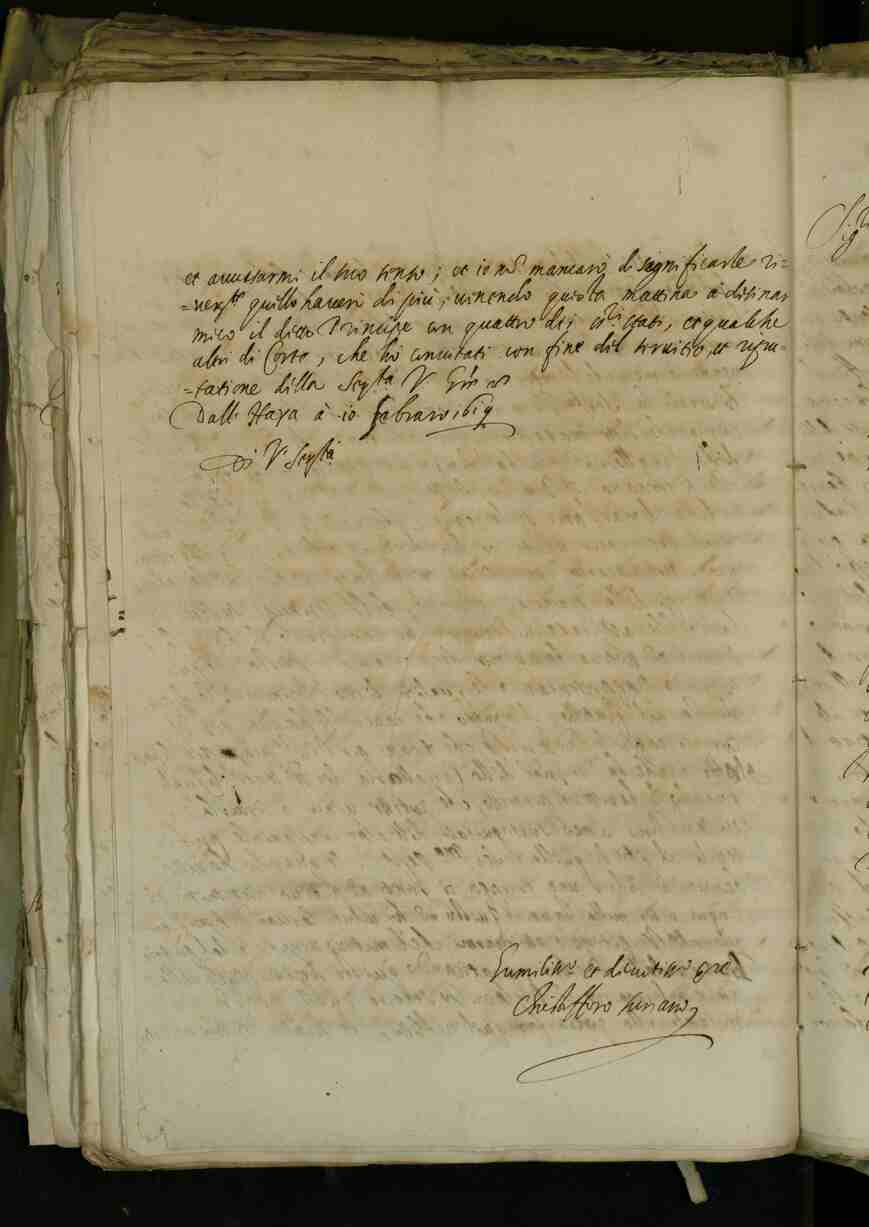 et auuisarmi il suo senso; et io nō mancarò di significarle ri=
=uer.te quello haverò di più; uenendo questa mattina à desinar
meco il detto Principe con quattro di i S.ri stati, et qualche
altri di Corte, che hò conuitati con fine del seruitio, et repu=
=tatione della Ser.tà V.
Dall' Haya à 10 febraro 1619
Di V. Ser.tà
Humiliss.o et deuotiss.o ser.re
Christofforo Suriano